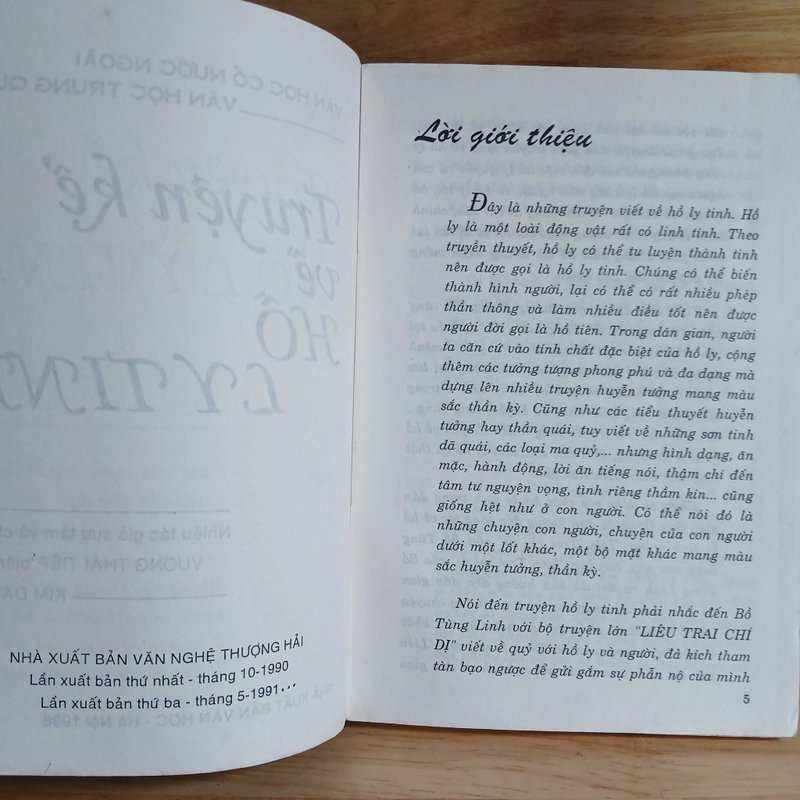 VĂN HỌC CỔ NƯỚC NGOÀI
VĂN HỌC TRUNG QU
Truyện kể
về
HỒ
LY TIN
Nhiều tác giả sưu tầm và c
VƯƠNG THÁI TIẾP biên
NHÀ XUẤT BẢN VĂN HỌC - HÀ NỘI 1998
NHÀ XUẤT BẢN VĂN NGHỆ THƯỢNG HẢI
Lần xuất bản thứ nhất - tháng 10-1990
Lần xuất bản thứ ba - tháng 5-1991...
Lời giới thiệu
Đây là những truyện viết về hồ ly tinh. Hồ
ly là một loài động vật rất có linh tính. Theo
truyền thuyết, hồ ly có thể tu luyện thành tinh
nên được gọi là hồ ly tinh. Chúng có thể biến
thành hình người, lại có thể có rất nhiều phép
thần thông và làm nhiều điều tốt nên được
người đời gọi là hồ tiên. Trong dân gian, người
ta căn cứ vào tính chất đặc biệt của hồ ly, cộng
thêm các tưởng tượng phong phú và đa dạng mà
dựng lên nhiều truyện huyễn tưởng mang màu
sắc thần kỳ. Cũng như các tiểu thuyết huyễn
tưởng hay thần quái, tuy viết về những sơn tinh
dã quái, các loại ma quỷ,... nhưng hình dạng, ăn
mặc, hành động, lời ăn tiếng nói, thậm chí đến
tâm tư nguyện vọng, tình riêng thầm kín... cũng
giống hệt như ở con người. Có thể nói đó là
những chuyện con người, chuyện của con người
dưới một lốt khác, một bộ mặt khác mang màu
sắc huyễn tưởng, thần kỳ.
Nói đến truyện hồ ly tinh phải nhắc đến Bồ
Tùng Linh với bộ truyện lớn "LIÊU TRAI CHÍ
DỊ" viết về quỷ với hồ ly và người, đả kích tham
tàn bạo ngược để gửi gắm sự phẫn nộ của mình
5